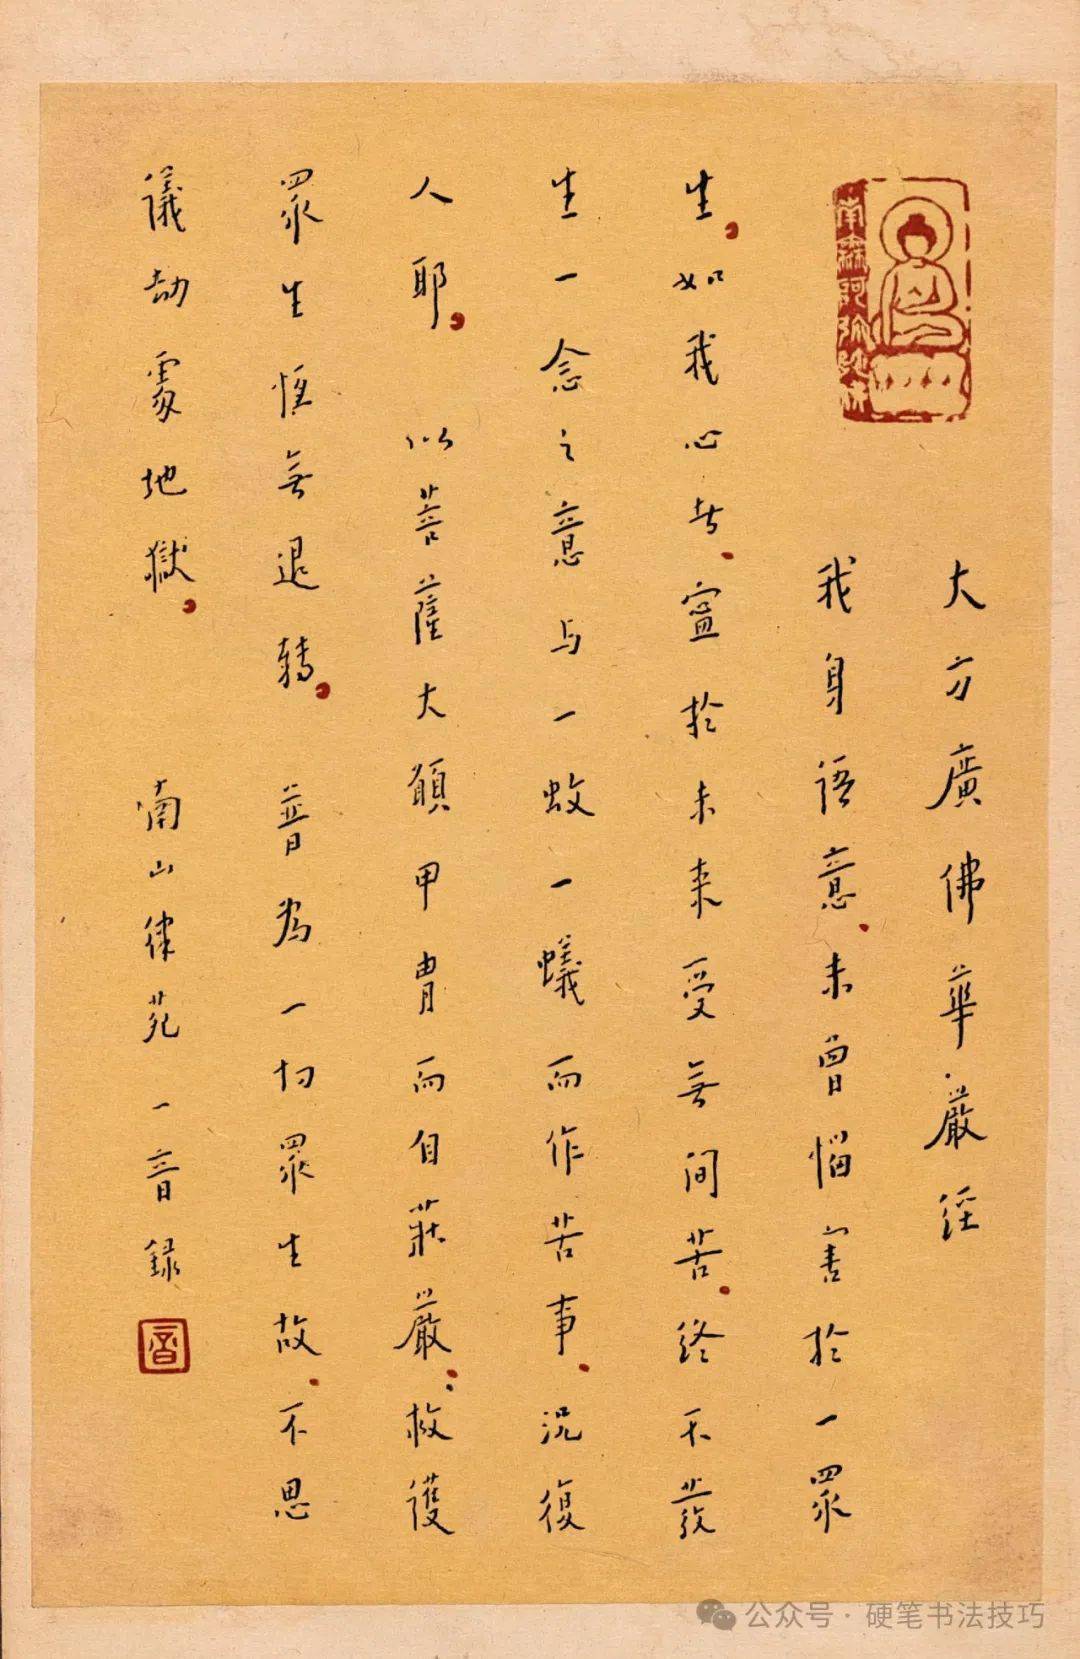 南無阿彌陀佛
大方廣佛華嚴經
我身語意、未曾惱害於一眾
生。如我心者、寧於未來受無間苦、終不發
生一念之意与一蚊一蟻而作苦事、況復
人耶。 以菩薩大願甲冑而自莊嚴、救護
眾生恆無退轉。 普為一切眾生故、不思
議劫處地獄。 南山律苑一音錄
音
公众号 · 硬笔书法技巧